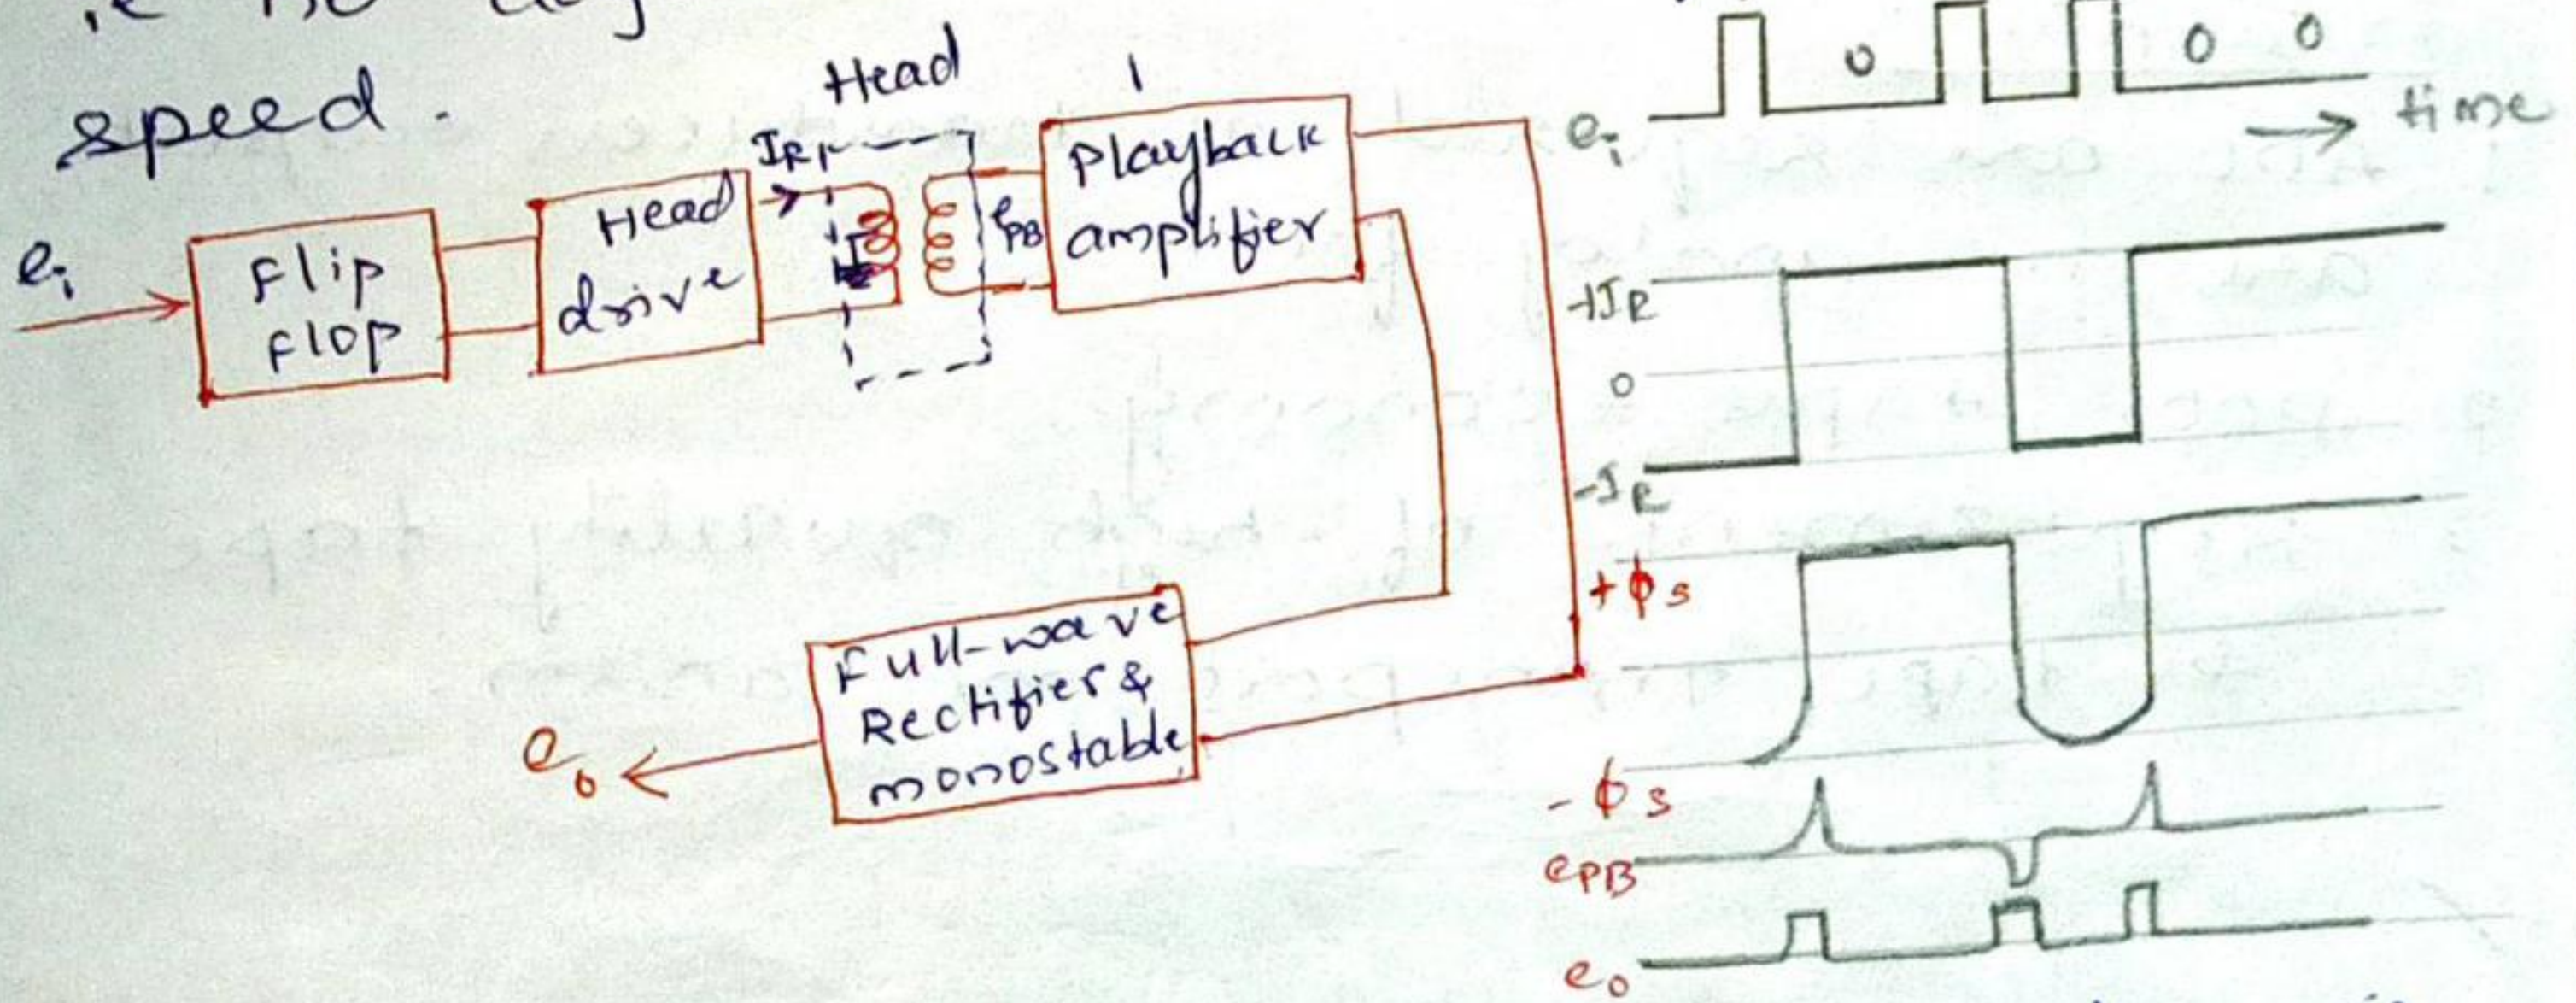 speed.
Head
eᵢ
Flip
Flop
Head
drive
I_R
e_PB
Playback
amplifier
Full-wave
Rectifier &
monostable
e₀
0 0 0
eᵢ
time
+I_R
0
-I_R
+ϕs
-ϕs
e_PB
e₀